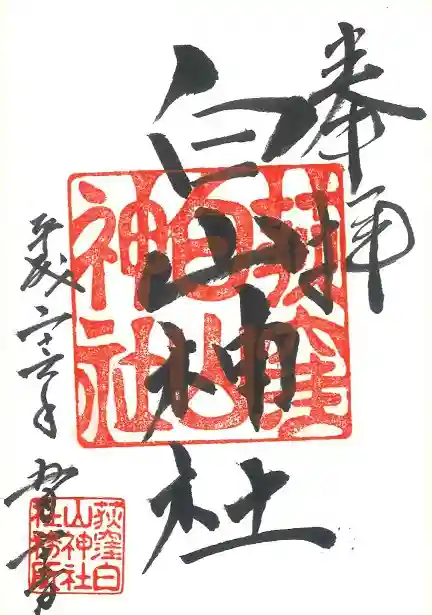 奉拝
白山神社
荻窪
白山
神社
平成二十六年
荻窪白
山神社
社務所